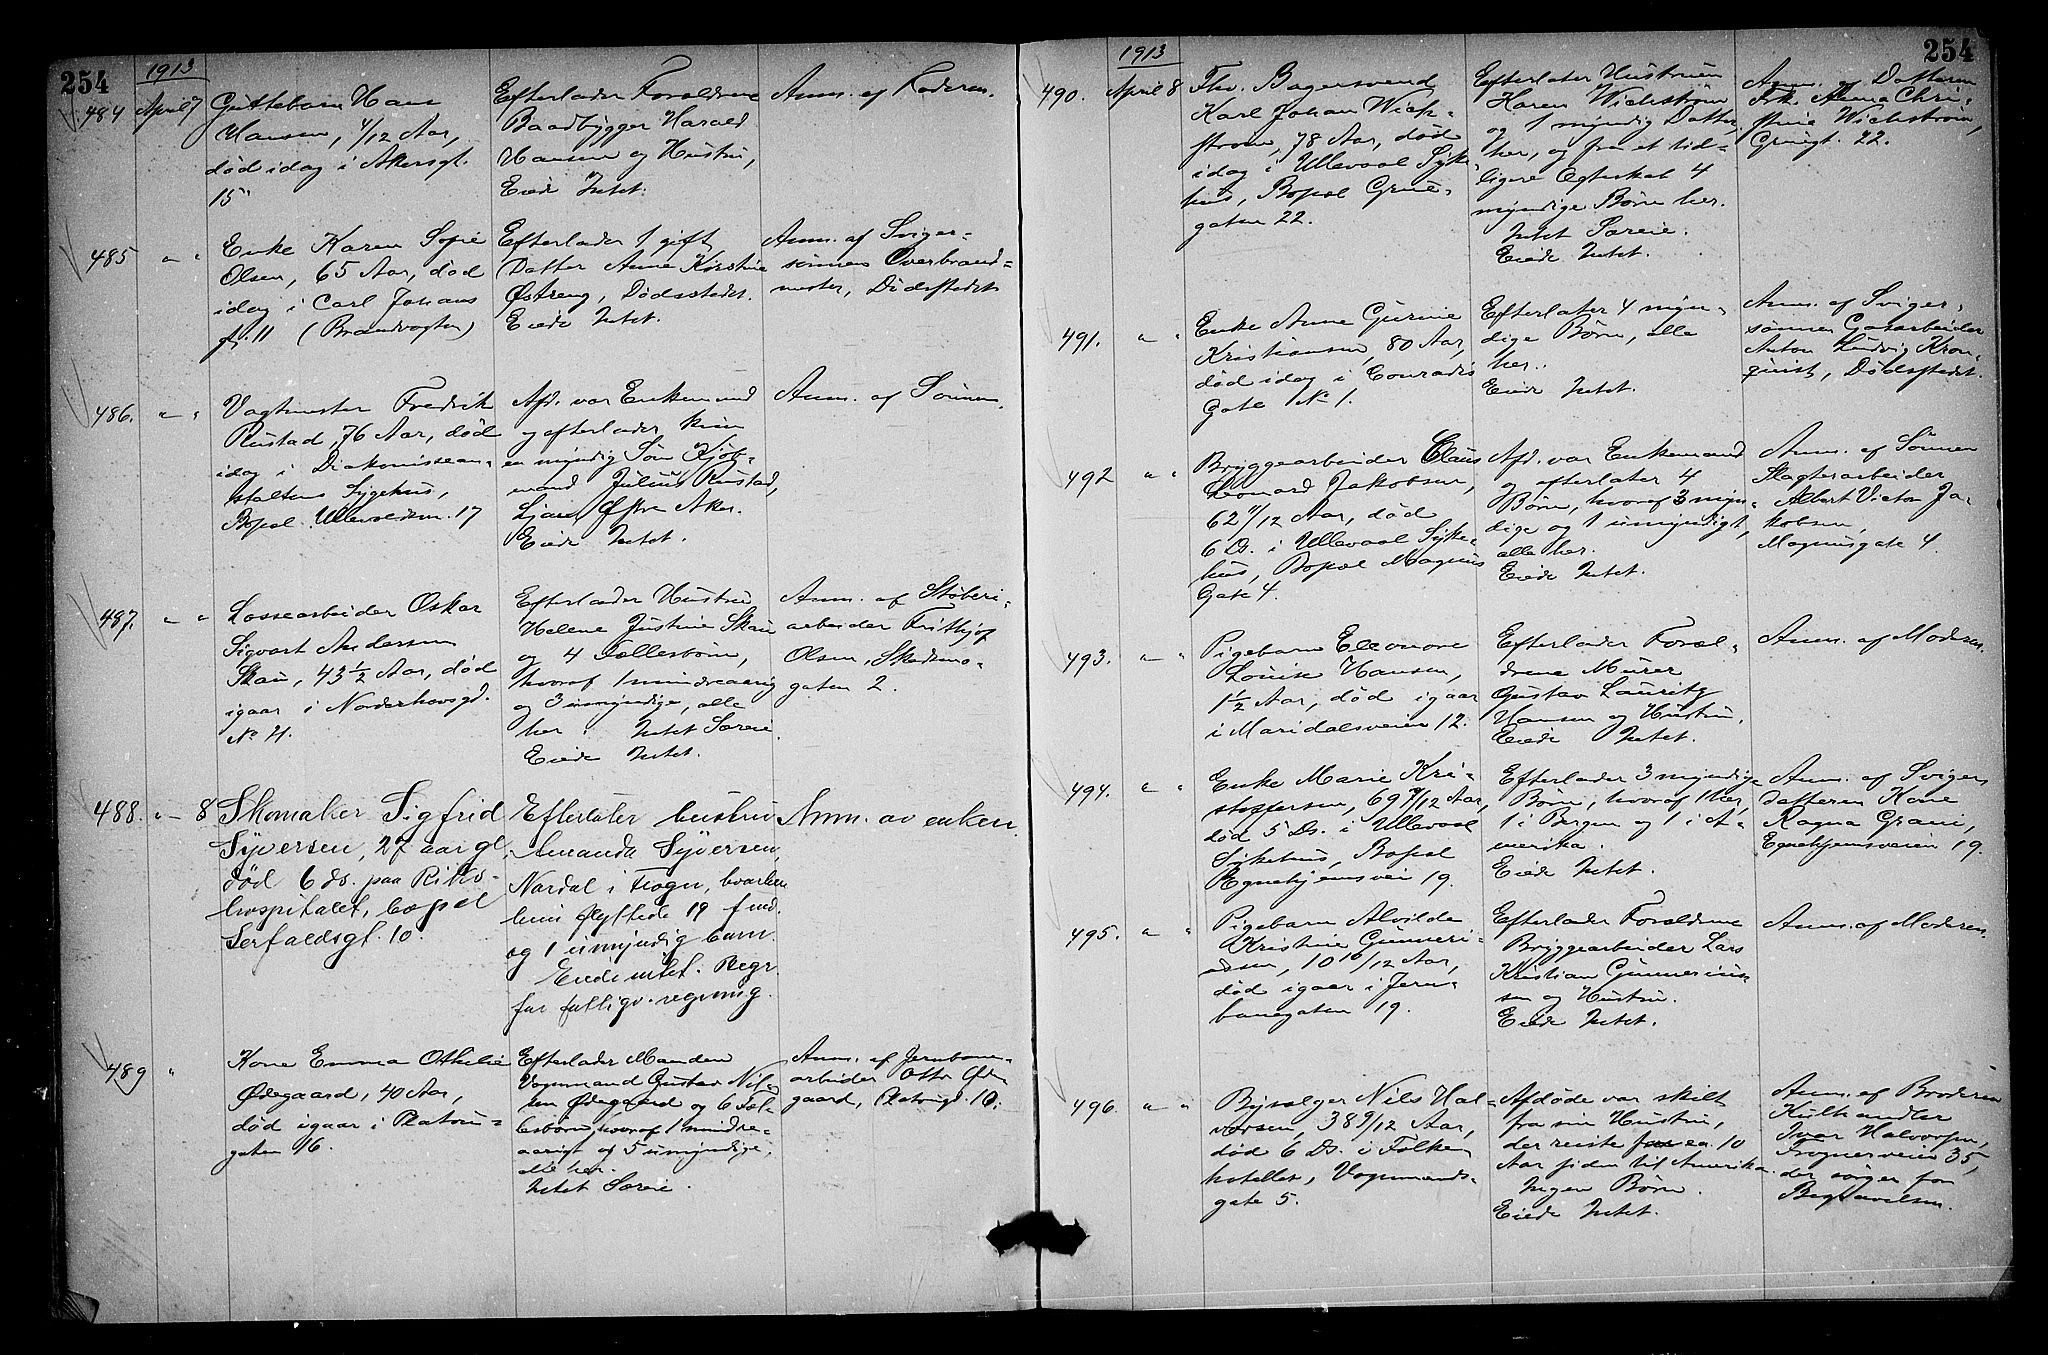 254
1913
484 April 7 Guttebarn Hans
Hansen, 4/12 Aar,
død idag i Akersgt.
15
Efterlader Forældrene
Baadbygger Harald
Hansen og Hustru,
Eiede Intet.
Anm. af Faderen.
485 " " Enke Karen Sofie
Olsen, 65 Aar, død
idag i Carl Johans
gt. 11 (Brandvagten)
Efterlader 1 gift
Datter Anne Kirstine
Østreng, Dødsstedet.
Eiede Intet.
Anm. af Sviger-
sønnen Overbrand-
mester, Dødsstedet
486. " " Vagtmester Fredrik
Rustad, 76 Aar, død
idag i Diakonissean-
staltens Sygehus,
Bopæl Ullevoldsvn. 17
Afd. var Enkemand
og efterlader kun
en myndig Søn Kjøb-
mand Julius Rustad,
Ljan, Østre Aker.
Eiede Intet.
Anm. af Sønnen.
487. " " Lossearbeider Oskar
Sigvart Andersen
Skau, 43 1/2 Aar, død
igaar i Norderhovsgd.
No 4.
Efterlader Hustru
Helene Justine Skau
og 4 Fællesbørn,
hvoraf 1 mindreaarig
og 3 umyndige, alle
her. Intet Særeie.
Eiede Intet.
Anm. af Støberi-
arbeider Frithjof
Olsen, Skedsmo-
gaten 2.
488. " — 8 Skomaker Sigfrid
Syversen, 27 aar gl.,
død 6 ds. paa Riks-
hospitalet, bopæl
Herfaldsgt. 10.
Efterlater hustru
Amanda Syversen,
Nardal i Frogn, hvorhen
hun flyttede 19 f. md.
og 1 umyndig barn.
Eiede intet. Begr.
for fattigv. regning.
Anm. av enken.
489 " Kone Emma Othelie
Ødegaard, 40 Aar,
død igaar i Platou-
gaten 16.
Efterlader Manden
Vognmand Gustav Nil-
sen Ødegaard og 6 Fæl-
lesbørn, hvoraf 1 mindre-
aarigt og 5 umyndige,
alle her.
Intet Særeie.
Anm. af Jernbane-
arbeider Otto Øde-
gaard, Platougt. 16.
254
1913
490. April 8 Fhv. Bagersvend
Karl Johan Wich-
strøm, 78 Aar, død
idag i Ullevaal Syke-
hus, Bopæl Grüne-
gaten 22.
Efterlater Hustruen
Karen Wichstrøm
og 1 myndig Datter,
her, og fra et tid-
ligere Ægteskab 4
myndige Børn her.
Intet Særeie.
Eiede Intet.
Anm. af Datteren
Frk. Anna Chri-
stine Wichstrøm,
Grünegt. 22.
491. " " Enke Anne Gurine
Kristiansen, 80 Aar,
død idag i Conradis
Gate No 1.
Efterlater 4 myn-
dige Børn, alle
her.
Eiede Intet.
Anm. af Sviger-
sønnen Gasarbeider
Anton Ludvig Kron-
quist, Dødsstedet.
492 " " Bryggearbeider Claus
Leonard Jakobsen,
62 11/12 Aar, død
6 Ds. i Ullevaal Syke-
hus, Bopæl Magnus
Gate 4.
Afd. var Enkemand
og efterlater 4
Børn, hvoraf 3 myn-
dige og 1 umyndigt,
alle her.
Eiede Intet.
Anm. af Sønnen
Slagteriarbeider
Albert Victor Ja-
kobsen,
Magnusgate 4.
493. " " Pigebarn Eleonore
Louise Hansen,
1 1/2 Aar, død igaar
i Maridalsveien 12.
Efterlader Foræl-
drene Murer
Gustav Lauritz
Hansen og Hustru.
Eiede Intet.
Anm. af Moderen.
494. " " Enke Marie Kri-
stoffersen, 69 9/12 Aar,
død 5 Ds. i Ullevaal
Sykehus, Bopæl
Egnehjemsvei 19.
Efterlader 3 myndige
Børn, hvoraf 1 her,
1 i Bergen og 1 i A-
merika.
Eiede Intet.
Anm. af Sviger-
datteren Kone
Ragna Grani,
Egnehjemsveien 19.
495. " " Pigebarn Alvilde
Kristine Gunneri-
ussen, 10 10/12 Aar,
død igaar i Jern-
banegaten 19.
Efterlader Forældrene
Bryggearbeider Lars
Kristian Gunnerius-
sen og Hustru.
Eiede Intet.
Anm. af Moderen.
496. " " Bysælger Nils Hal-
vorsen 38 9/12 Aar,
død 6 Ds. i Folke-
hotellet, Vognmands-
gate 5.
Afdøde var skilt
fra sin Hustru,
der reiste for ca. 10
Aar siden til Amerika.
Ingen Børn.
Eiede Intet.
Anm. af Broderen
Kulhandler
Ivar Halvorsen,
Frognerveien 35,
der sørger for
Begravelsen.